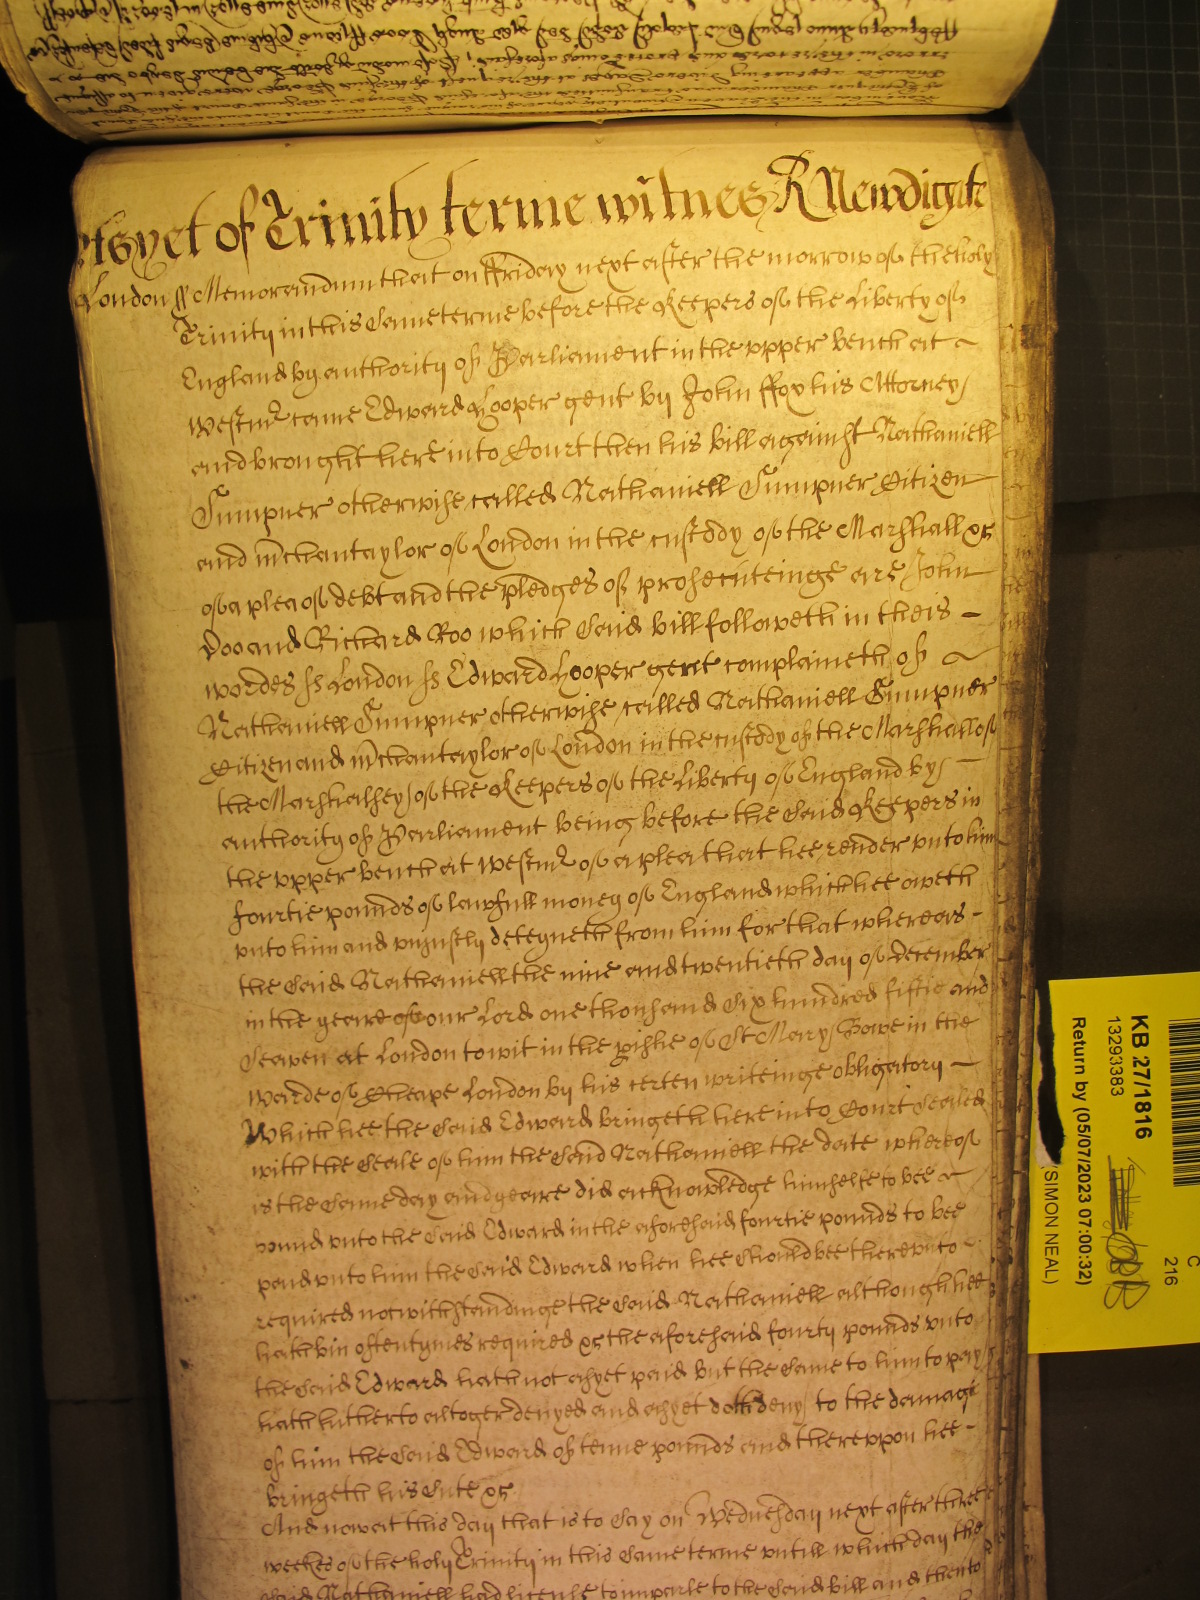 Asyet of Trinity terme witnes R Newdigate
London ss Memorandum that on ffriday next after the morrow of the holy
Trinity in this same terme before the Keepers of the Liberty of
England by authority of Parliament in the vpper bench at
Westmr came Edward Cooper gent by John ffox his Attorney
and brought here into Court then his bill against Nathaniell
Sumpner otherwise called Nathaniell Sumpner Citizen
and mchantaylor of London in the custody of the Marshall &c
of a plea of debt and the pledges of prosecuteinge are John
Doo and Richard Roo which said bill followeth in theis
wordes ss London ss Edward Cooper gent complaineth of
Nathaniell Sumpner otherwise called Nathaniell Sumpner
Citizen and mchantaylor of London in the custody of the Marshall of
the Marshalsey of the Keepers of the Liberty of England by
authority of Parliament being before the said Keepers in
the vpper bench at Westmr of a plea that hee render vnto him
fourtie pounds of lawfull money of England which hee oweth
vnto him and vniustly deteyneth from him for that whereas
the said Nathaniell the nine and twentieth day of December
in the yeare of our Lord one thousand six hundred fiftie and
seaven at London to wit in the pishe of St Mary Bowe in the
warde of Cheape London by his certen writeinge obligatory
Which hee the said Edward bringeth here into Court sealed
with the seale of him the said Nathaniell the date whereof
is the same day and yeare did acknowledge himselfe to bee
bound vnto the said Edward in the aforesaid fourtie pounds to bee
paid vnto him the said Edward when hee should bee therevnto
required notwithstandinge the said Nathaniell although hee
hath bin oftentymes required &c the aforesaid fourty pounds vnto
the said Edward hath not asyet paid but the same to him to pay
hath hitherto altoger denyed and asyet doth deny to the damage
of him the said Edward of tenne pounds and therevpon hee
bringeth his sute &c
And now at this day that is to say on Wednesday next after three
weekes of the holy Trinity in this same terme vntill which day the
said Nathaniell had license to imparle to the said bill and then to
KB 27/1816
13293383
Return by (05/07/2023 07:00:32)
(SIMON NEAL)
C
216